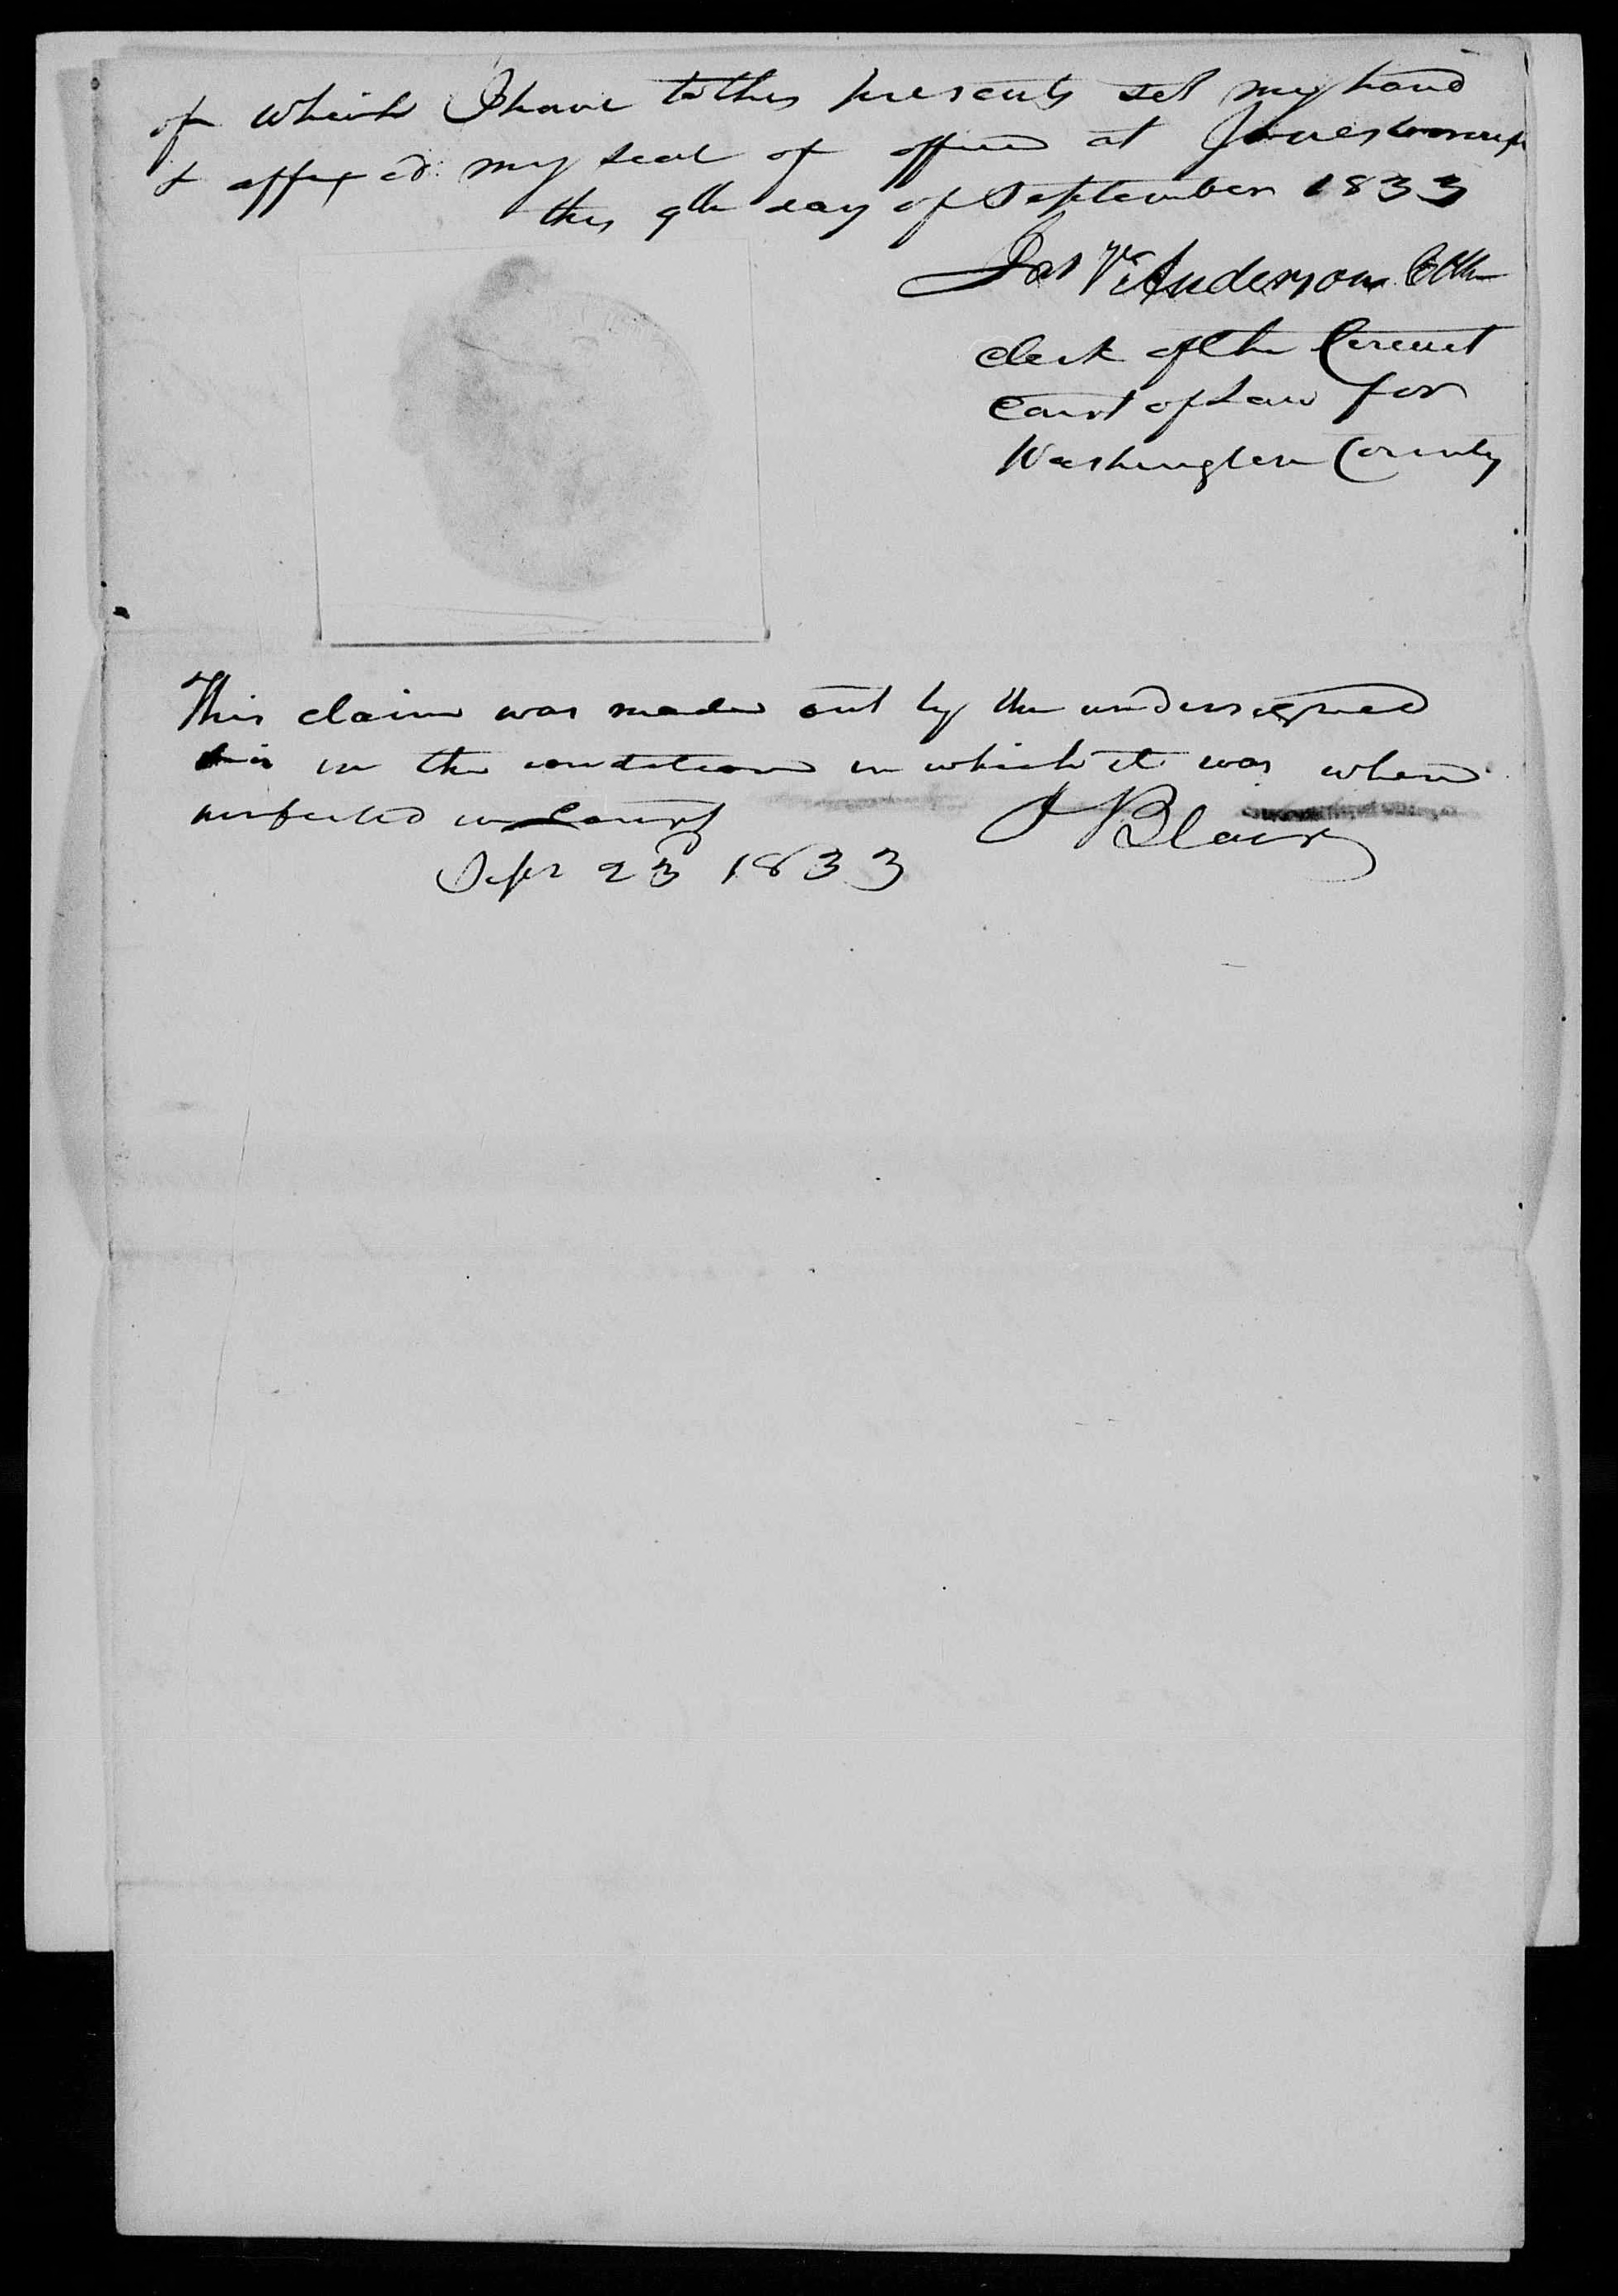 of which I have to this presents set my hand
& affixed my seal of office at Jonesborough
this 9th day of September 1833
Jas V Anderson Clk
Clerk of the Circuit
Court of Law for
Washington County
This claim was made out by the undersigned
& is in the condition in which it was when
perfected in Court
J Blair
Sept 23d 1833